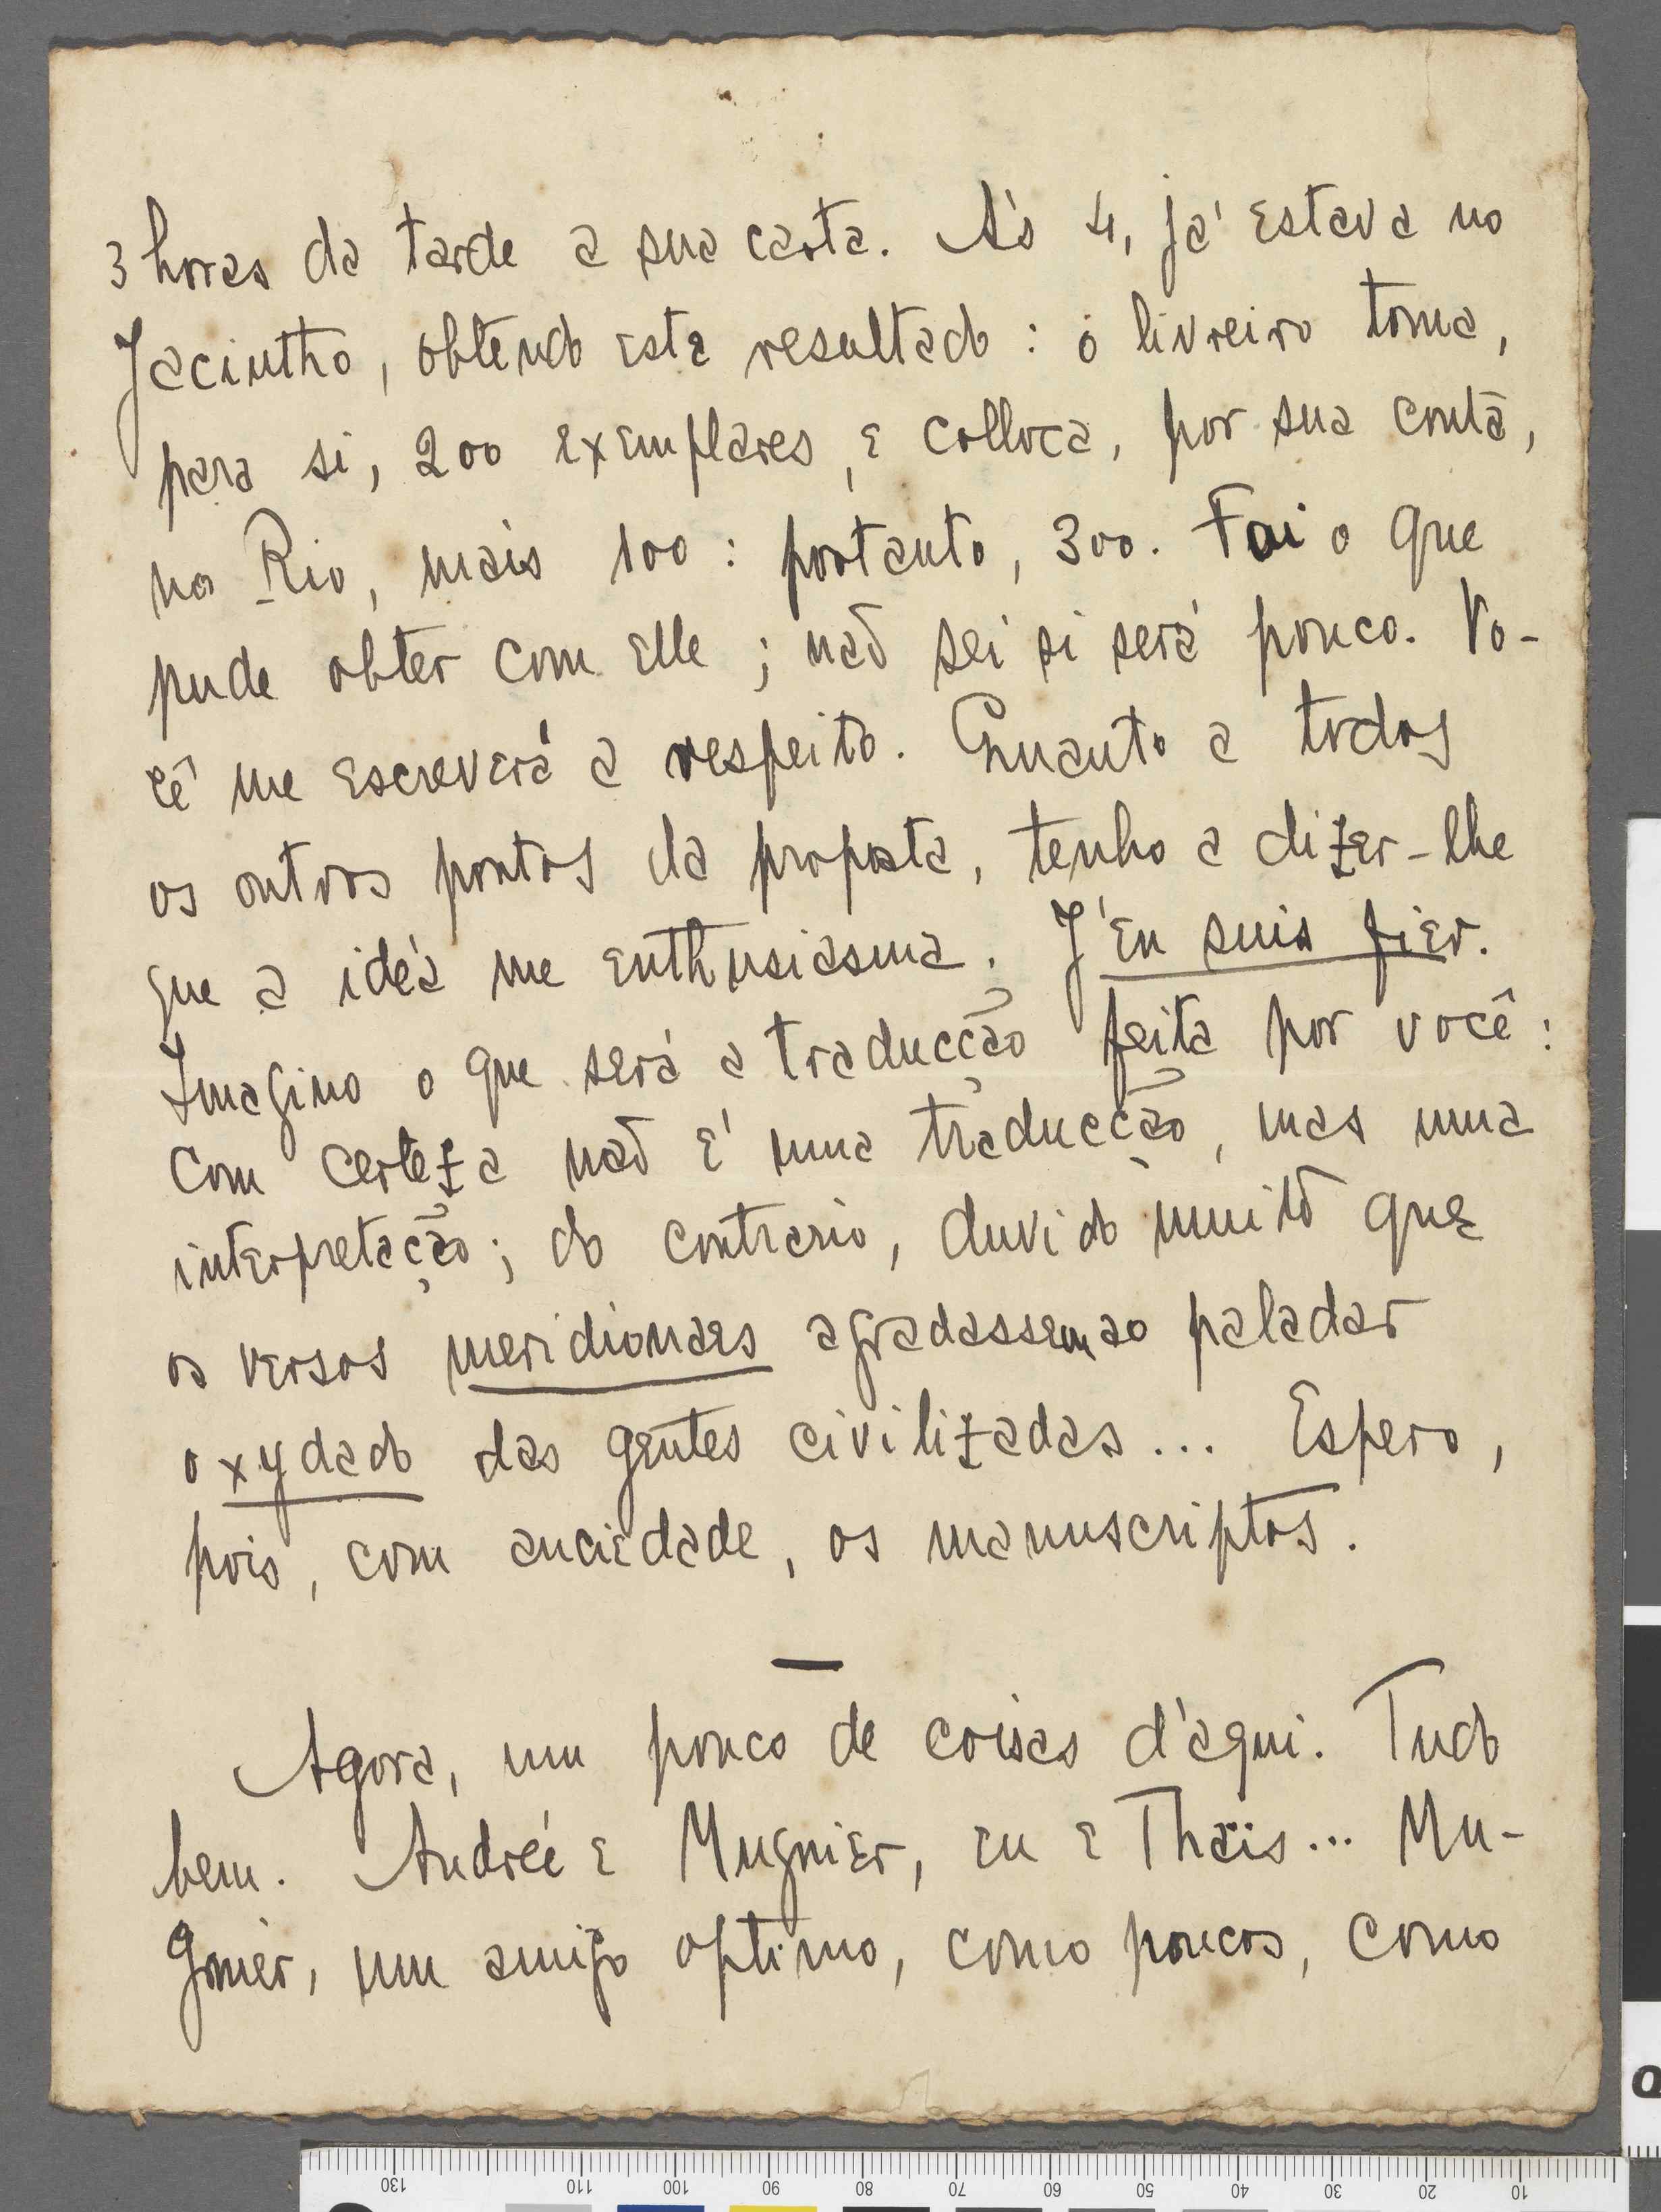 3 horas da tarde a sua carta. A's 4, já estava no
Jacintho, obtendo este resultado: o livreiro toma,
para si, 200 exemplares, e colloca, por sua conta,
no Rio, mais 100: portanto, 300. Foi o que
pude obter com elle; não sei si será pouco. Vo-
cê me escreverá a respeito. Quanto a todos
os outros pontos da proposta, tenho a dizer-lhe
que a idéa me enthusiasma. J'en suis fier.
Imagino o que será a traducção feita por você:
com certeza não é uma traducção, mas uma
interpretação; do contrario, duvido muito que
os versos meridionaes agradassem ao paladar
oxydado das gentes civilizadas... Espero,
pois, com anciedade, os manuscriptos.
—
Agora, um pouco de coisas d'aqui. Tudo
bem. Andreé e Mugnier, eu e Thaïs... Mu-
gnier, um amigo optimo, como poucos, como
130 110 100 90 80 70 60 50 40 30 20 10